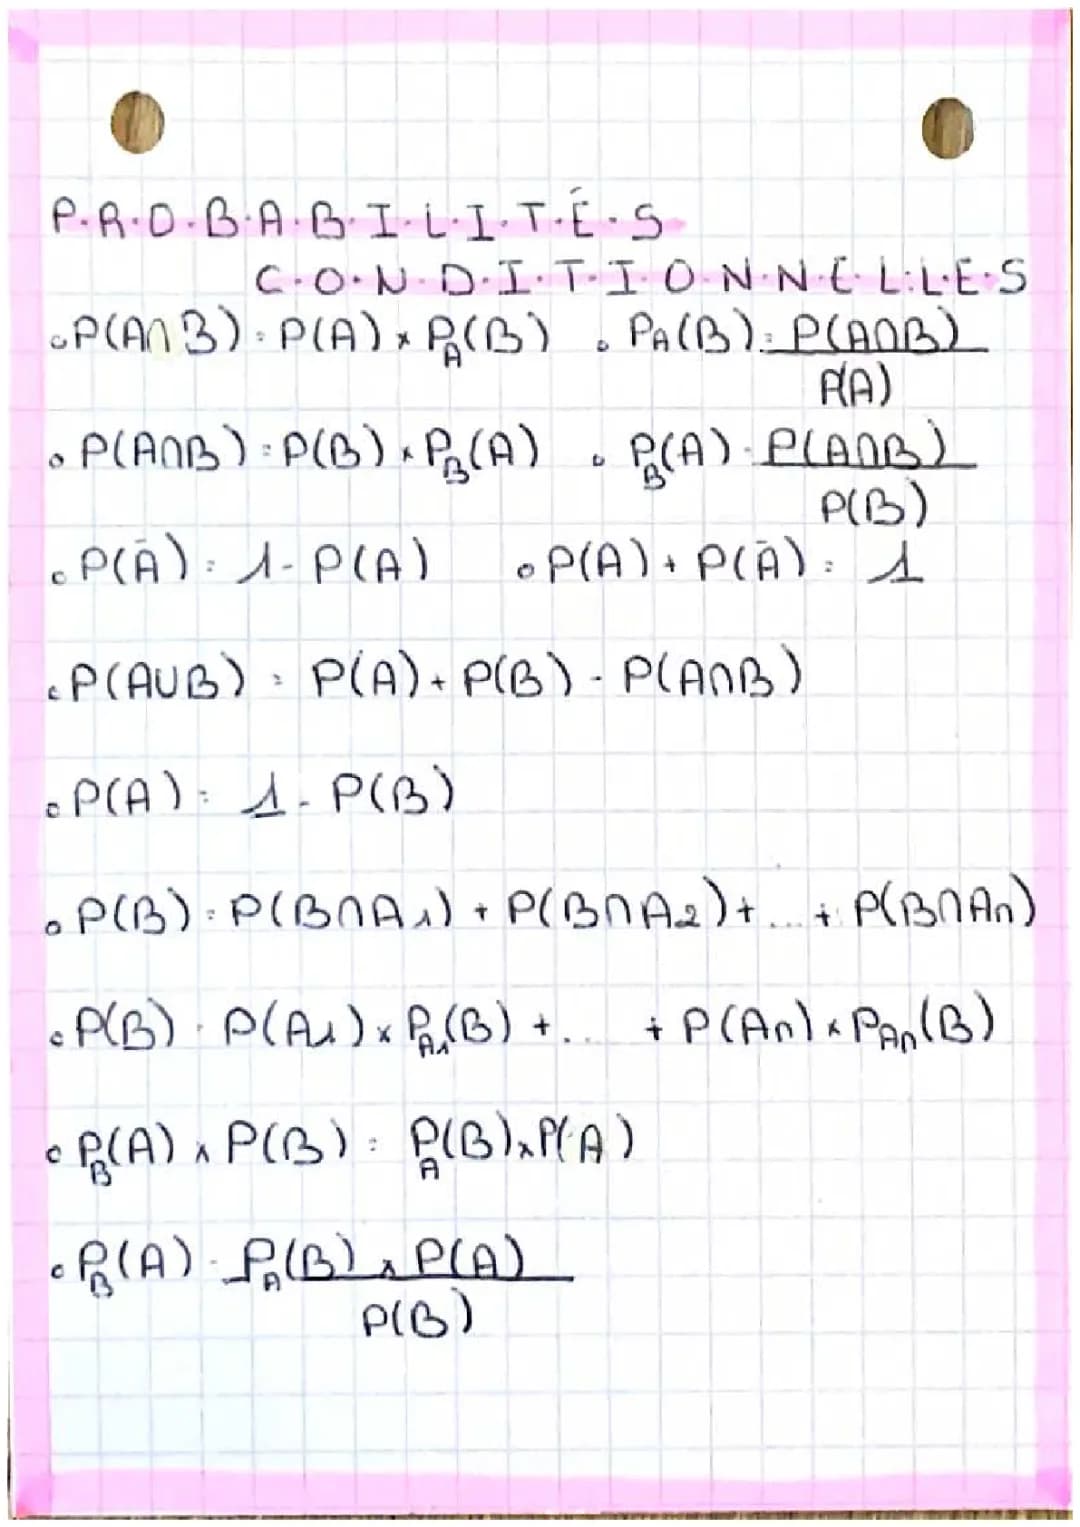 P.R.O.B.A.B.I.L.I.T.É.S
C.O.N.D.I.T.I.O.N.N.E.L.L.E.S
• P(A∩B) = P(A) × P_A(B) • P_A(B) = P(A∩B) / P(A)
• P(A∩B) = P(B) × P_B(A) • P_B(A) = P(A∩B) / P(B)
• P(Ā) = 1 - P(A) • P(A) + P(Ā) = 1
• P(A∪B) = P(A) + P(B) - P(A∩B)
• P(A) = 1 - P(B)
• P(B) = P(B∩A₁) + P(B∩A₂) + ... + P(B∩An)
• P(B) = P(A₁) × P_A₁(B) + ... + P(An) × P_An(B)
• P_B(A) × P(B) = P_A(B) × P(A)
• P_B(A) = P_A(B) × P(A) / P(B)